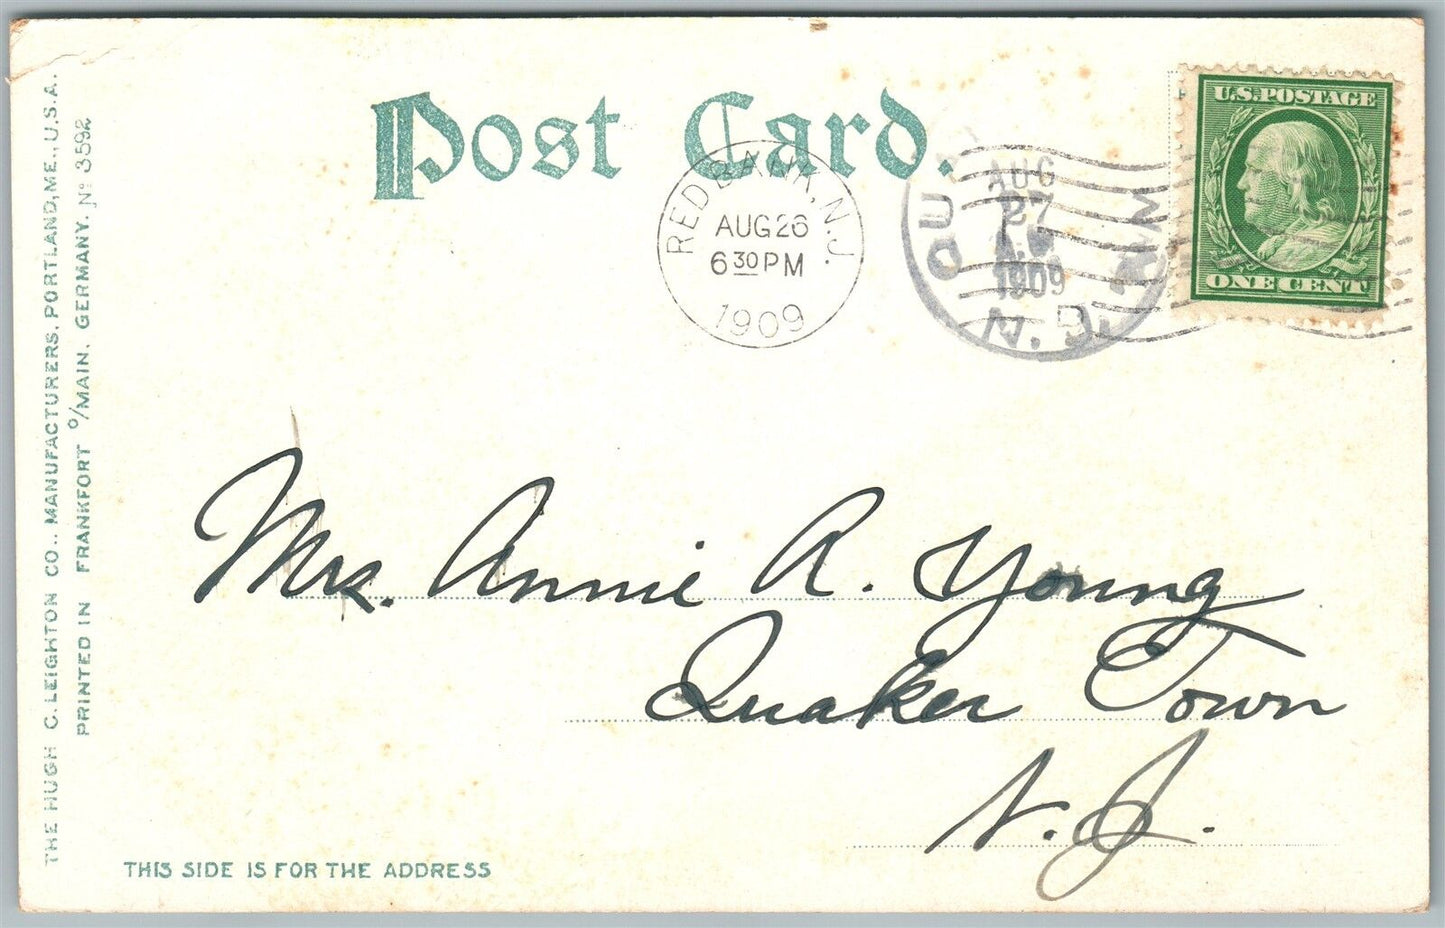 Post Card.
U.S.POSTAGE
ONE CENT
RED BANK, N.J.
AUG 26
6 30 PM
1909
AUG
27
1909
N.J.
THE HUGH C. LEIGHTON CO., MANUFACTURERS, PORTLAND, ME., U.S.A.
PRINTED IN FRANKFORT o/MAIN, GERMANY. No 3592
Mrs. Annie R. Young
Quaker Town
N. J.
THIS SIDE IS FOR THE ADDRESS